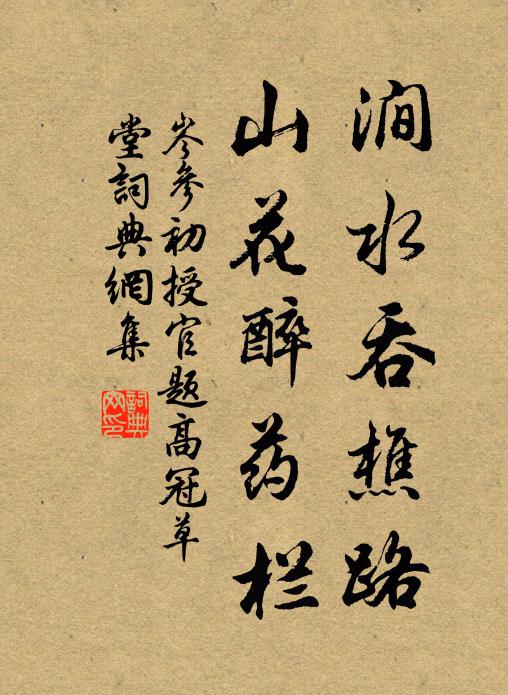 涧水吞樵路
山花醉药栏
岑参初授官题高冠草
堂詞典網集
詞典
网印